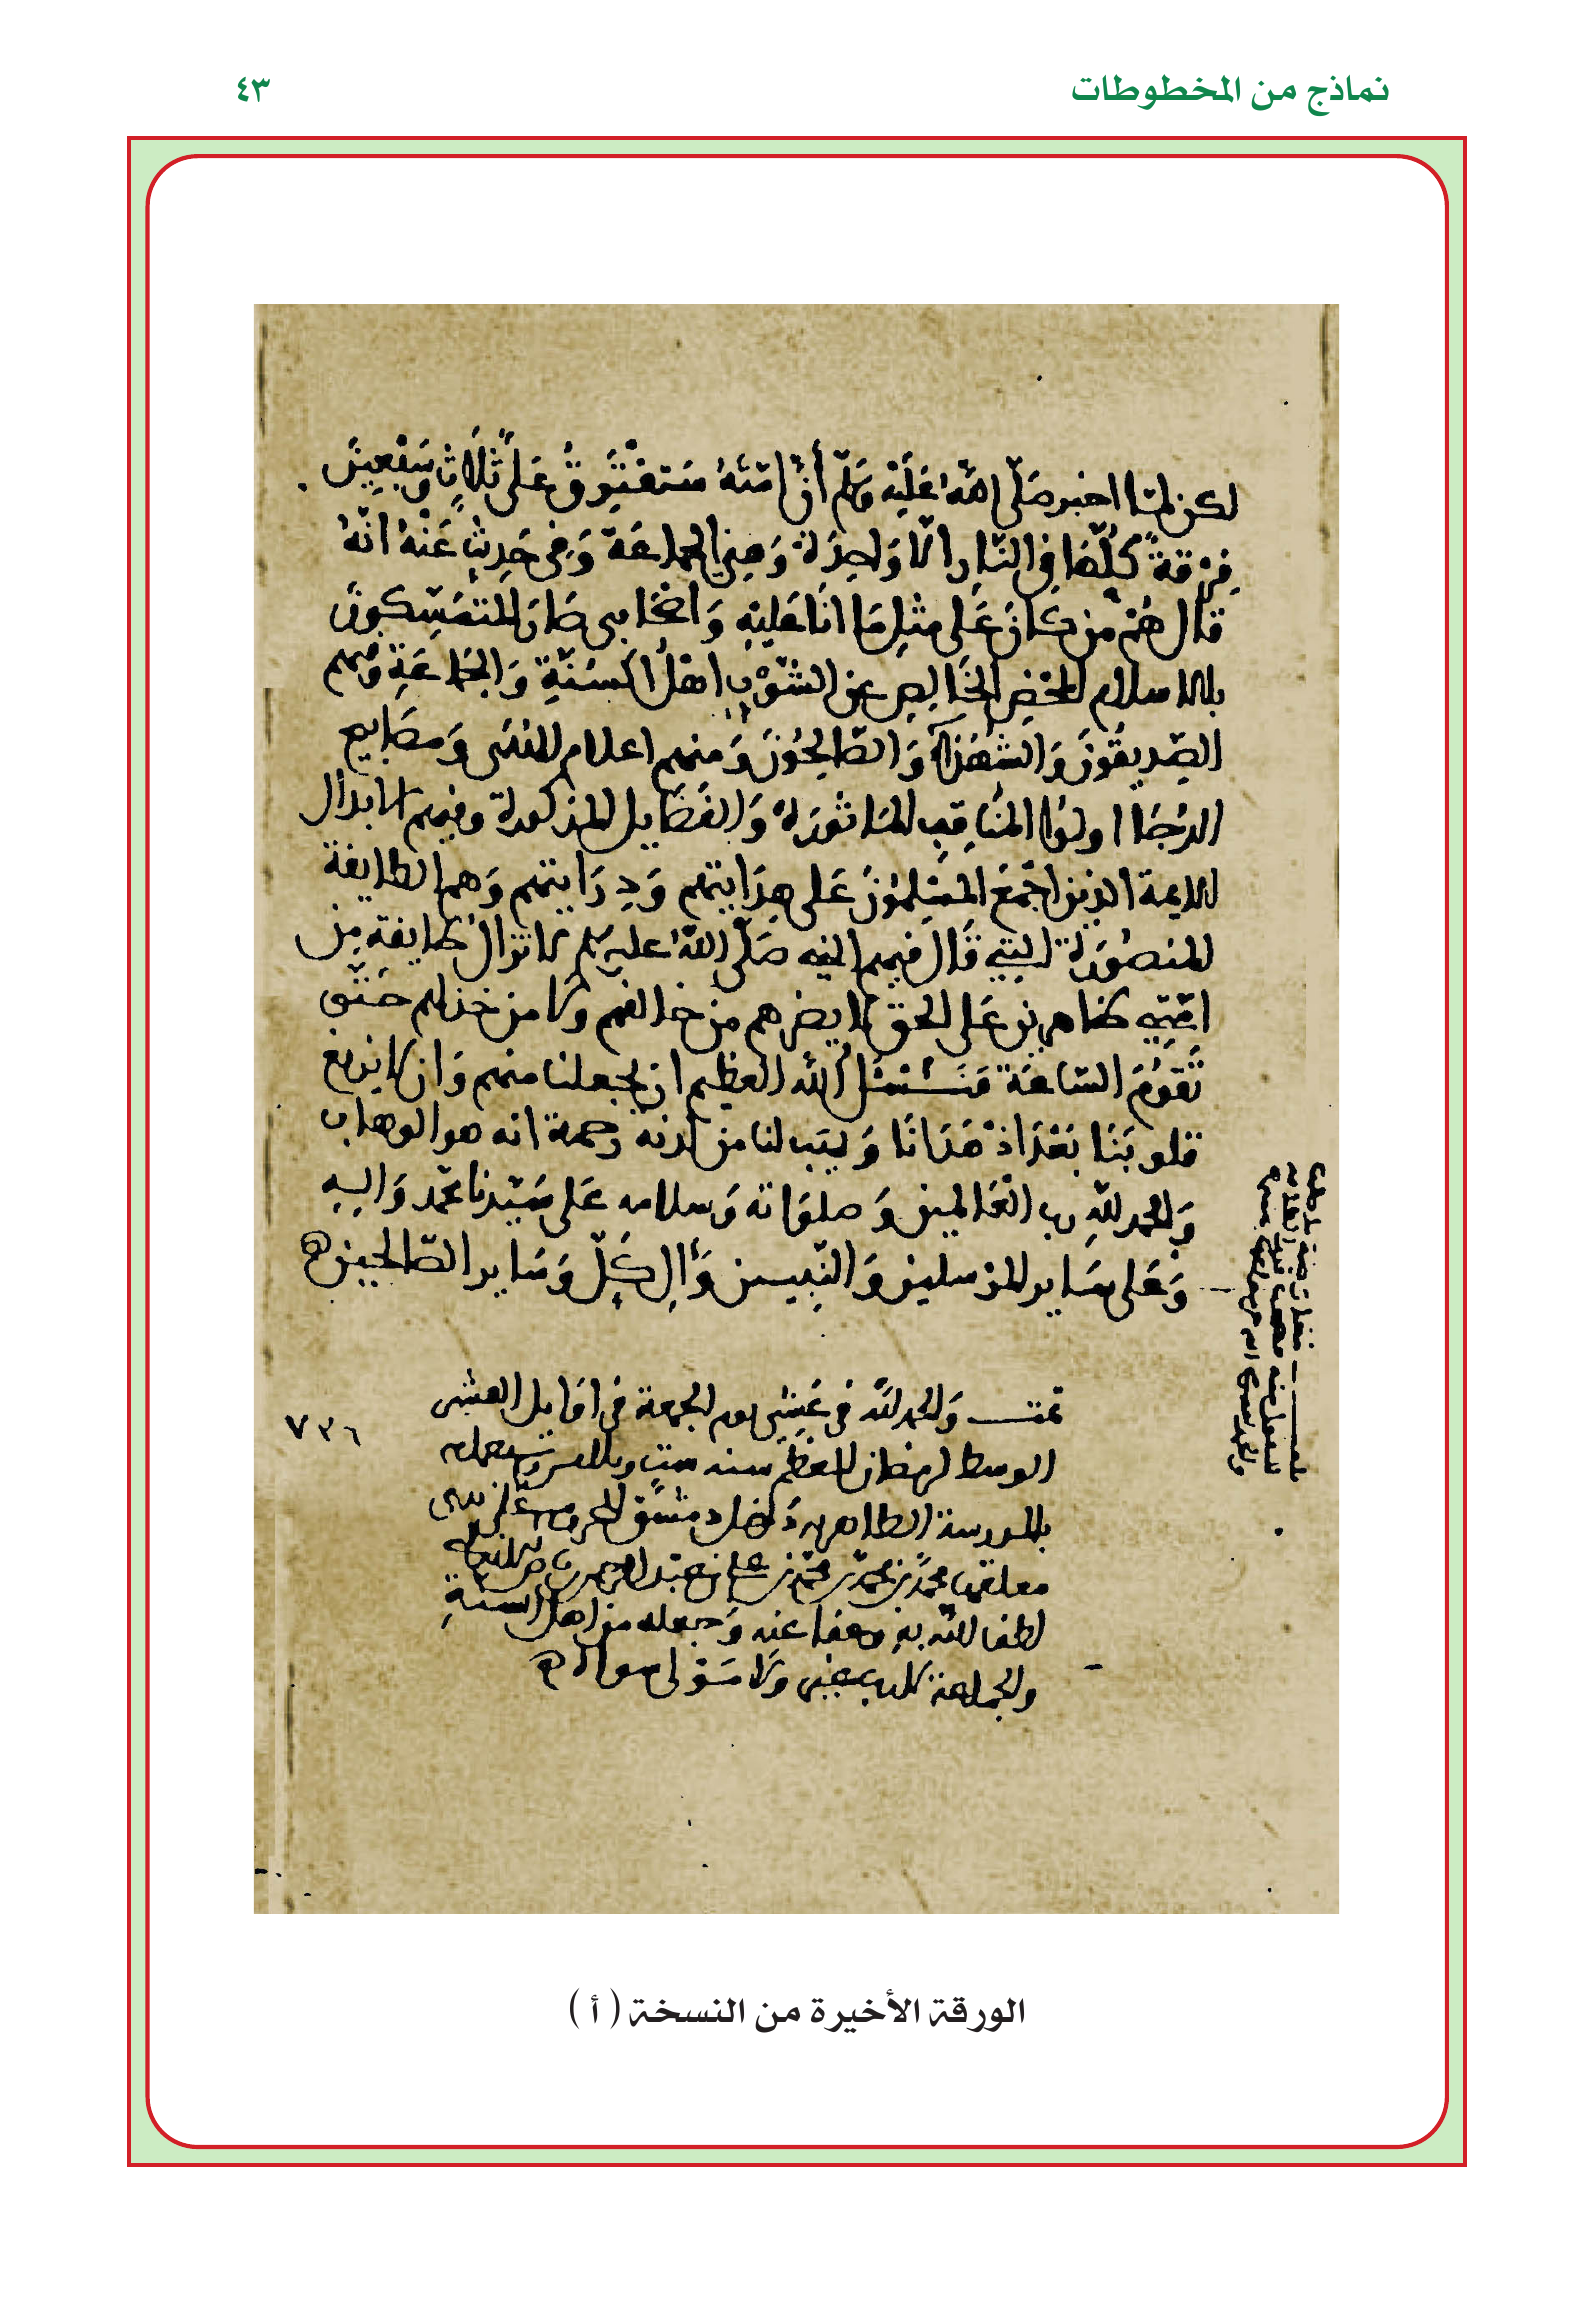 نماذج من المخطوطات
٤٣
لكن لما اخبر صَلّى اللهُ عَلَيْه وَسَلّم أنّ امّتَهُ سَتَفْتَرِقُ عَلَى ثَلَاثٍ وسَبْعِينَ
فِرْقةً كُلّهَا في النّار الّا وَاحِدَة وَهِيَ الجماعَة وَفِي حَدِيثٍ عَنْهُ انّهُ
قَال هُمْ من كَانَ عَلى مِثلِ مَا انَا عَليْهِ وَاصْحَابي صَارَ المتمَسّكونَ
بالاسلام المحْضِ الخَالِصِ عن الشّوْبِ اهْلُ السُنّةِ وَالجَمَاعَةِ وَفيهم
الصِّديقُونَ وَالشُهَدَآءُ وَالصّالِحُونَ وَمنهم اعلام الهُدَى وَمصَابيح
الدُجَا اولوُا المنَاقِبِ المَاثُورَةِ وَالفَضَايل المذكورة وفيهم الابدال
الايمة الذين اجْمَعَ المسْلِمُونَ عَلى هِدَايتهم وَدِرَايتهم وَهم الطايفة
المنصُورَة التِي قَال فيهم النبي صَلّى اللهُ عليه وسلم لا تزالُ طايفة مِن
امّتِي ظاهرين عَلى الحق لا يضرهم من خالفهم ولا من خذلهم حَتّى
تَقُومَ السّاعَة فَنَسْئَلُ اللهَ العظيم ان يجعلنا منهم وَان لا يزيغ
قلوبَنَا بَعْدَ اذْ هَدَانَا وَيهَب لنا من لدنه رحمة انه هو الوهاب
وَالحمد للهِ رب العَالمين وَصلوَاته وَسلامه عَلى سَيّدنا محمّد وَاله
وَعَلى سَاير المرْسلين وَالنّبِيين وَآلِ كلّ وَسَاير الصّالحين
تمت وَالحمد لله في عَشِي يوم الجمعة في اوَايل العشر
الوسط لرمضان المعظّم سنه ست وثلاثين وسبعمايه
٧٣٦
بالمدرسة الظاهريه دَاخل دمشق المحروسة عَلى يدي
معلقها محمد بن محمّد بن محمّد بن
لطف الله بهِ وعفا عنه وَجعله من اهل السنّةِ
والجماعة
الورقة الأخيرة من النسخة ( أ )